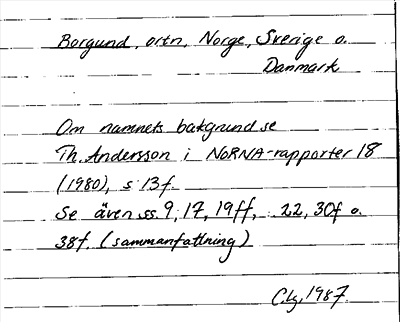 Borgund, ortn, Norge, Sverige o.
Danmark
Om namnets bakgrund se
Th. Andersson i NORNA-rapporter 18
(1980), s 13f.
Se även ss. 9, 17, 19ff, 22, 30f o.
38f. (sammanfattning)
C.Lg. 1987.